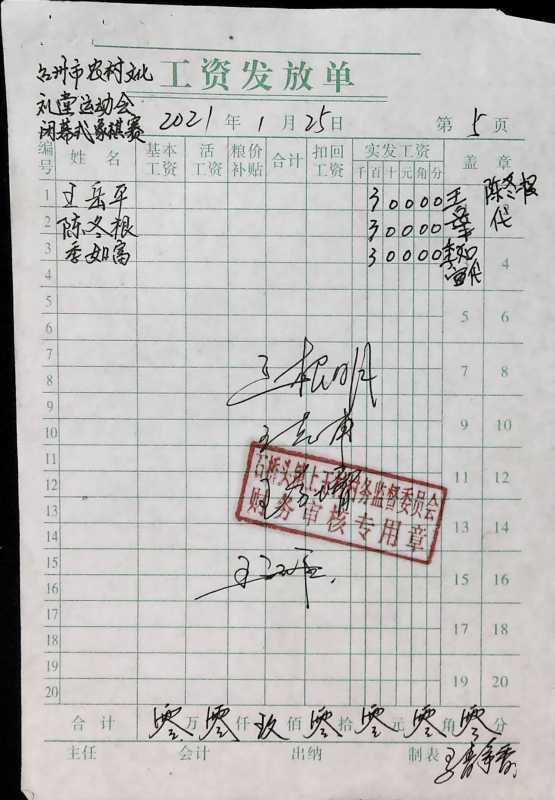 工资发放单
台州市农村文化
礼堂运动会
闭幕式象棋赛
2021年1月25日 第5页
编号 姓名 基本工资 活工资 粮价补贴 合计 扣回工资 实发工资 盖章
千百十元角分
1 王岳平 30000 王岳平 陈冬根代
2 陈冬根 30000
3 季如富 30000 季如富代 4
4
5 5 6
6
7 7 8
8 王根明
9 9 10
10
11 11 12
石桥头镇上 务监督委员会
12
财务审核专用章
13 13 14
14
15 15 16
16
17 17 18
18
19 19 20
20
合计 零万零仟玖佰零拾零元零角零分
主任 会计 出纳 制表